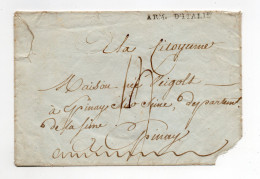 ARM. D'ITALIE
à la Citoyenne
Maison née
à Epinay sur Seine, département
de la Seine
Epinay